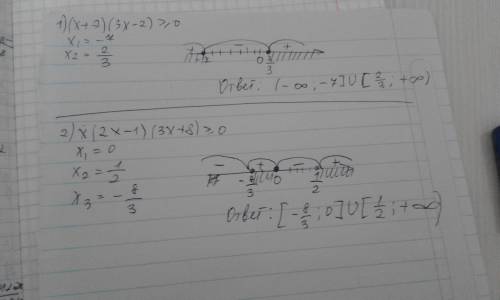 1) (x+7)(3x-2)≥0
x₁ = -7
x₂ = 2/3
+ -7 - 0 2/3 +
Ответ: (-∞, -7]∪[2/3; +∞)
2) x(2x-1)(3x+8)≥0
x₁ = 0
x₂ = 1/2
x₃ = -8/3
- -8/3 + 0 - 1/2 +
Ответ: [-8/3; 0]∪[1/2; +∞)